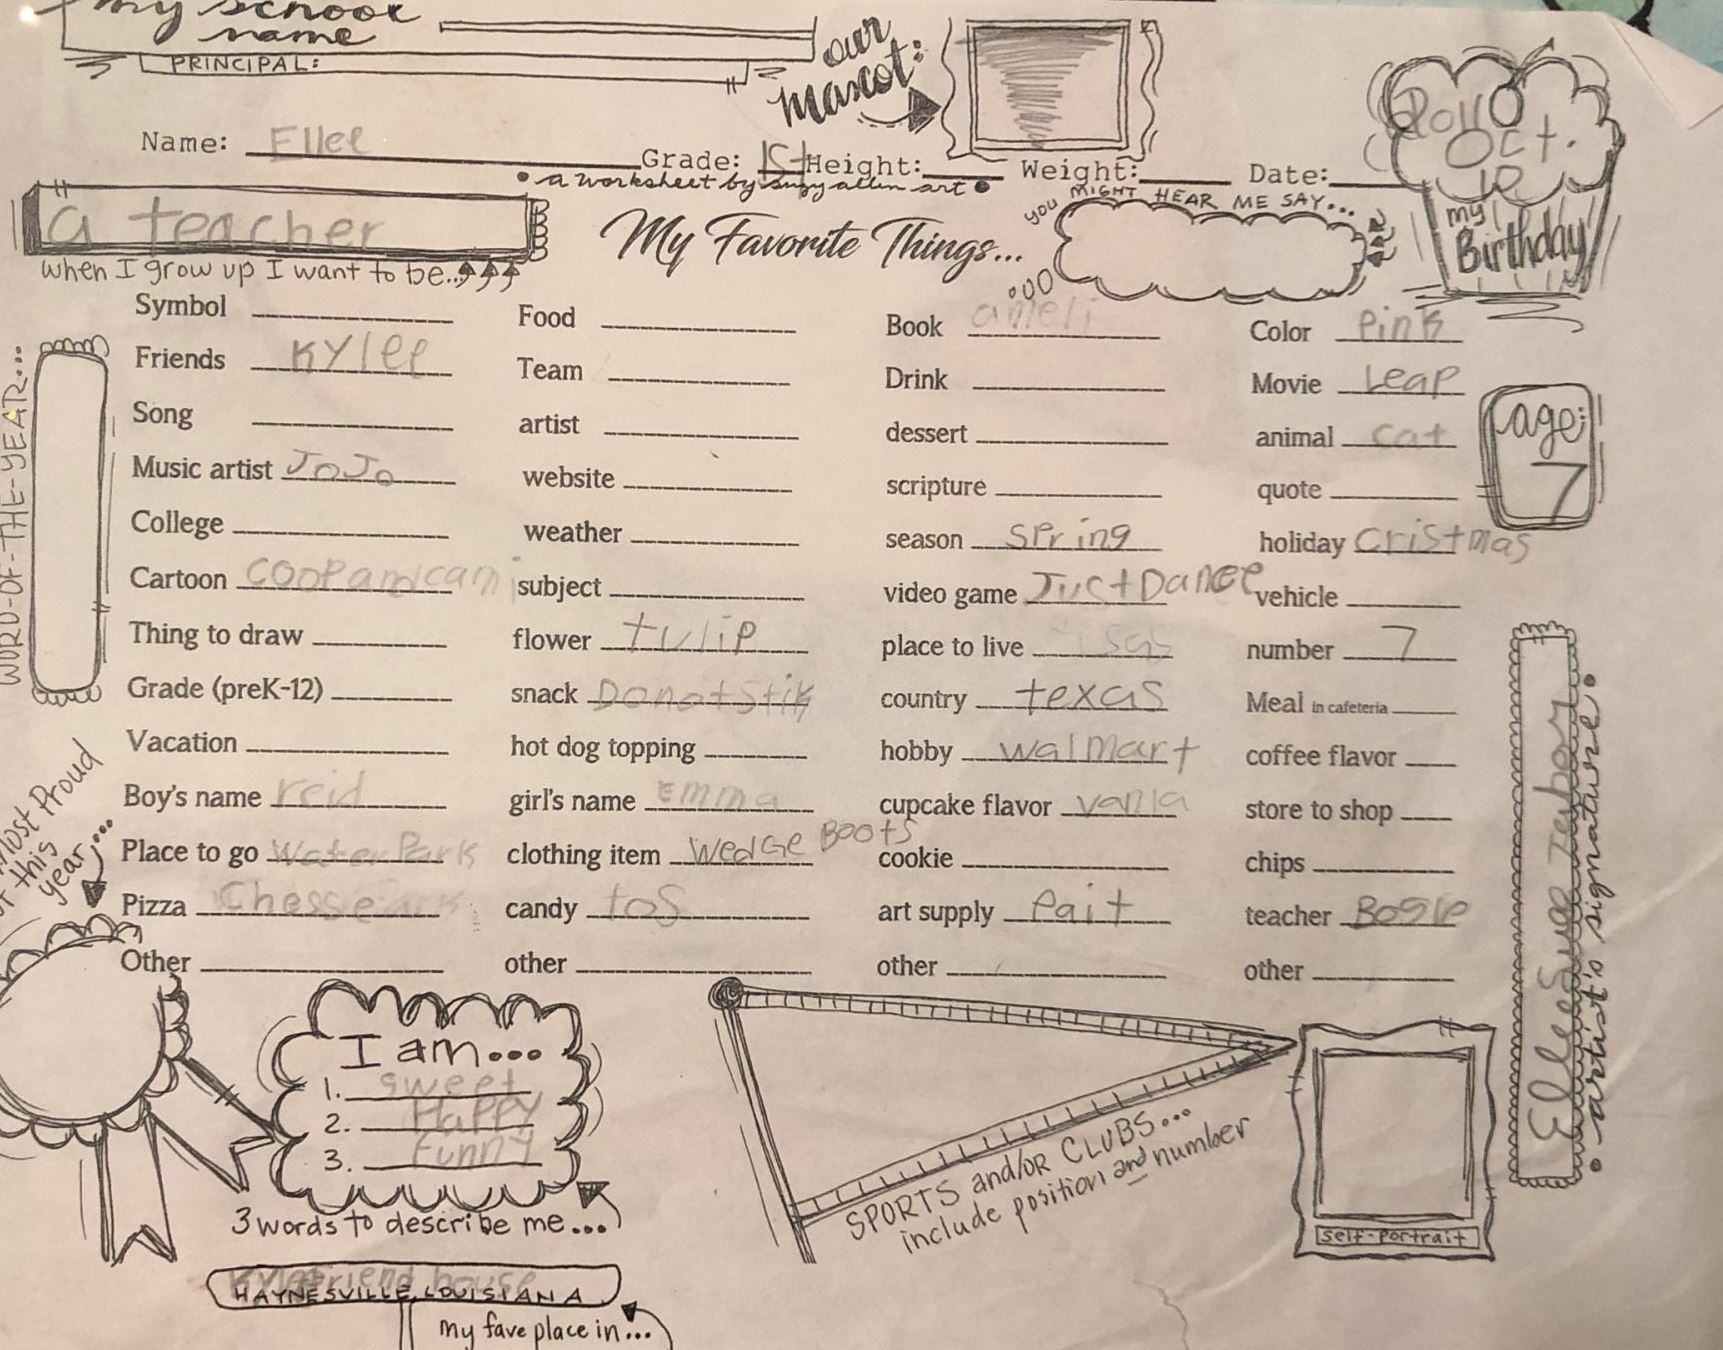 my school
name
PRINCIPAL:
our
mascot:
Name: Ellee Grade: 1st Height: Weight: Date:
• a worksheet by suzy allen art •
Oct.
my
Birthday
a teacher
when I grow up I want to be...
My Favorite Things...
you MIGHT HEAR ME SAY...
WORD-OF-THE-YEAR...
age:
7
Symbol Food Book ameli Color Pink
Friends KYlee Team Drink Movie Leap
Song artist dessert animal cat
Music artist JoJo website scripture quote
College weather season spring holiday cristmas
Cartoon coopandcami subject video game JustDance vehicle
Thing to draw flower tulip place to live number 7
Grade (preK-12) snack DonotStik country texas Meal in cafeteria
Vacation hot dog topping hobby walmart coffee flavor
Boy's name reid girl's name Emma cupcake flavor vanla store to shop
Place to go WaterPark clothing item Wedge Boots cookie chips
Pizza Chesse candy tos art supply Pait teacher Bogle
Other other other other
most Proud
this
year...
I am...
1. sweet
2. Happy
3. Funny
3 words to describe me...
SPORTS and/or CLUBS...
include position and number
self-portrait
• artist's signature •
friend house
HAYNESVILLE, LOUISIANA
my fave place in...